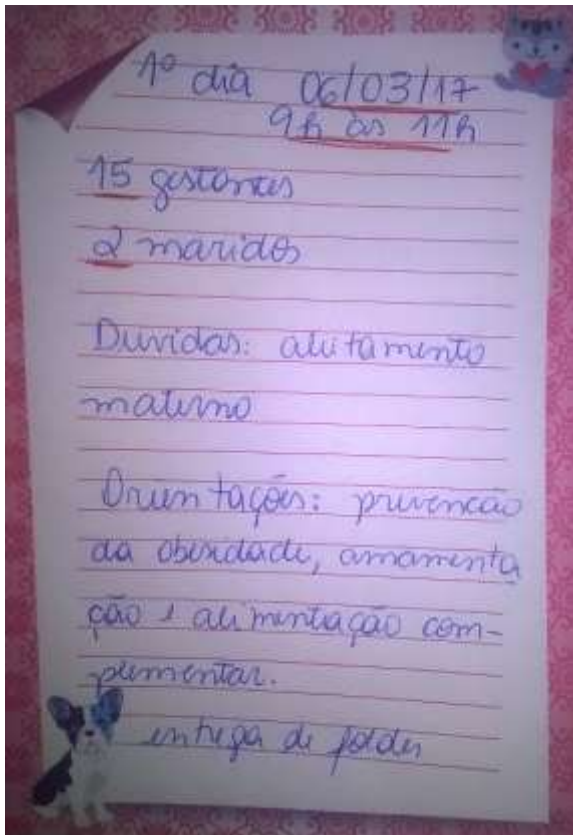 1º dia 06/03/17
9h às 11h
15 gestantes
2 maridos
Duvidas: aleitamento
materno
Orientações: prevenção
da obesidade, amamenta
ção e alimentação com-
plementar.
entrega de folder